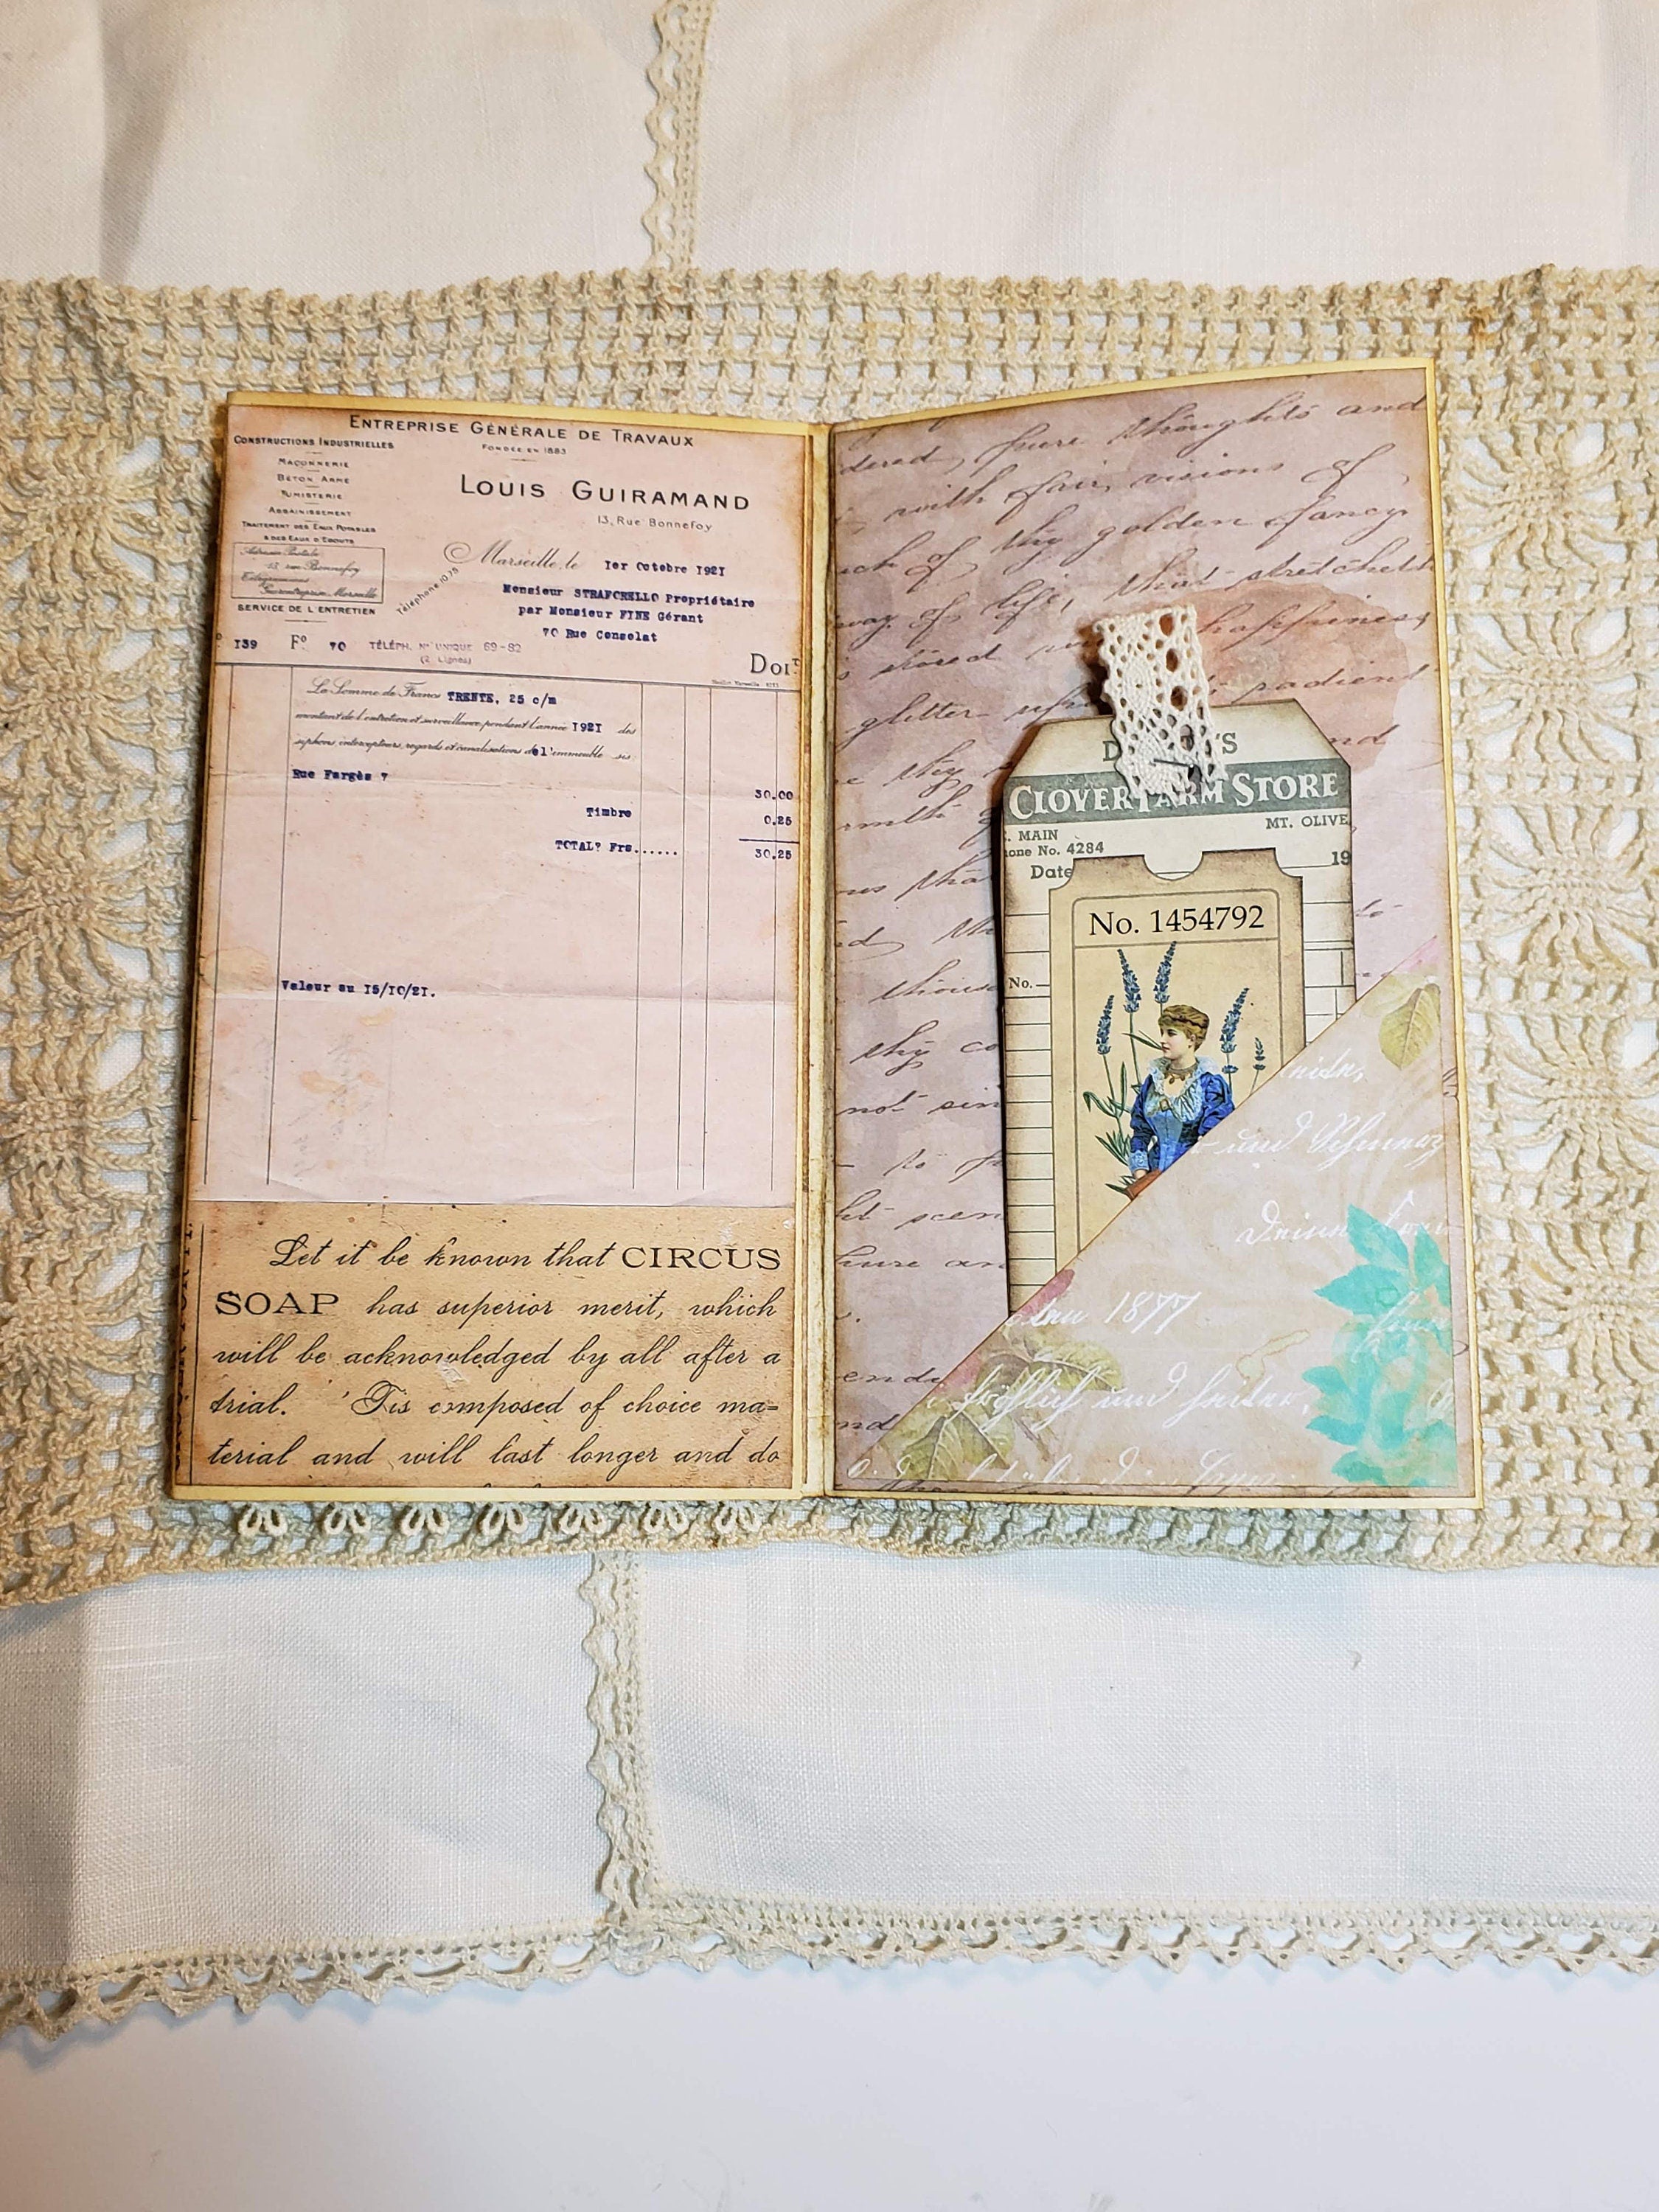 ENTREPRISE GÉNÉRALE DE TRAVAUX
FONDÉE EN 1883
CONSTRUCTIONS INDUSTRIELLES
MAÇONNERIE
BÉTON ARMÉ
FUMISTERIE
ASSAINISSEMENT
TRAITEMENT DES EAUX POTABLES
& DES EAUX D'EGOUTS
Adresse Postale
13 rue Bonnefoy
Télégrammes
Guirentreprise Marseille
SERVICE DE L'ENTRETIEN
LOUIS GUIRAMAND
13, Rue Bonnefoy
Téléphone 10-75
Marseille, le 1er Octobre 1921
Monsieur STRAFORELLO Propriétaire
par Monsieur FINE Gérant
70 Rue Consolat
139 Fº 70 TÉLÉPH. Nº UNIQUE 69-82
(2 Lignes)
DOIT
La Somme de Francs TRENTE, 25 c/m
montant de l'entretien et surveillance pendant l'année 1921 des
siphons, intercepteurs, regards et canalisations de l'immeuble sis
Rue Fargès 7
30.00
Timbre 0.25
TOTAL? Frs...... 30.25
Valeur au 15/10/21.
Let it be known that CIRCUS
SOAP has superior merit, which
will be acknowledged by all after a
trial. 'Tis composed of choice ma=
terial and will last longer and do
dered, pure thoughts and
with fair visions of
of thy golden fancy
way of life, that stretcheth
stored happiness
glitter radient
thy
not sin
to
scen
'S
CLOVER FARM STORE
. MAIN MT. OLIVE
one No. 4284
Date 19
No.
No. 1454792
und Schmerz
1877
fröhlich und heiter,